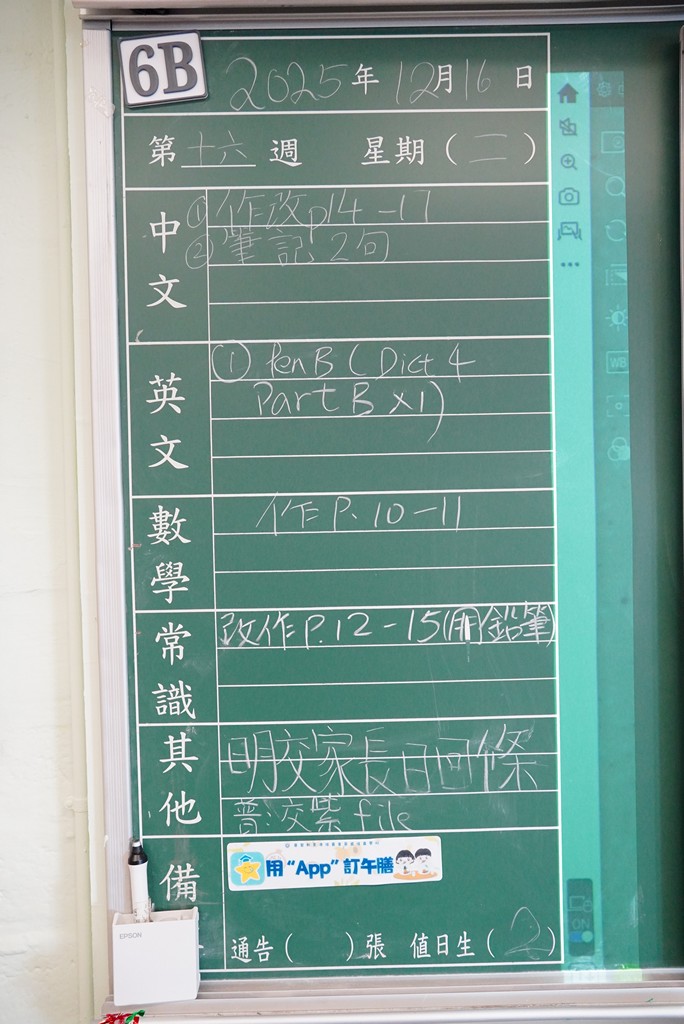 6B
2025年12月16日
第十六週 星期（二）
中文
①作改p14-17
②筆記2句
英文
① Pen B (Dict 4
Part B x1)
數學
作P.10-11
常識
改作P.12-15(用鉛筆)
其他
明交家長日回條
普:交紫file
備
用“App”訂午膳
通告（ ）張 值日生（2）
EPSON
WB
ON